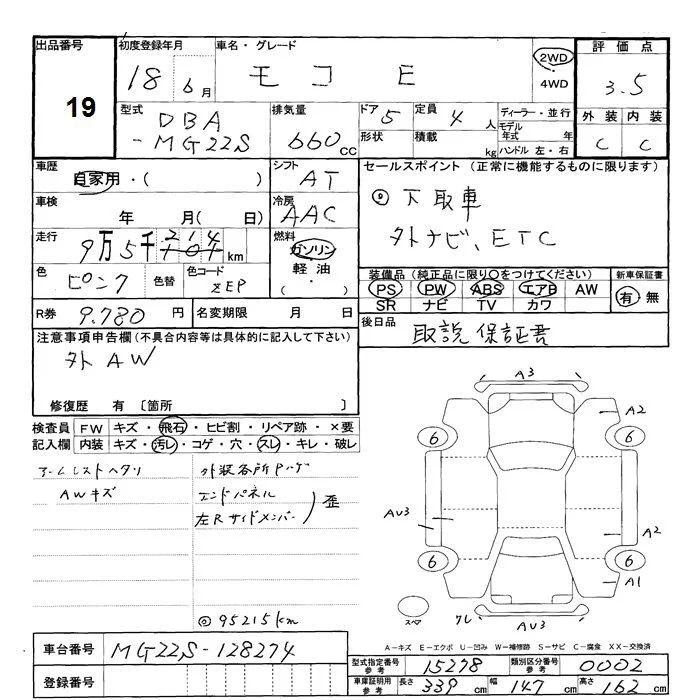 出品番号
19
初度登録年月
18 6月
車名・グレード
モコ E
2WD
4WD
評価点
3.5
型式
DBA
-MG22S
排気量
660cc
ドア 5
定員 4人
形状
積載 kg
ディーラー・並行
モデル年式 年
ハンドル 左・右
外装 内装
C C
車歴
自家用・( )
シフト
AT
セールスポイント (正常に機能するものに限ります)
◎下取車
外ナビ、ETC
車検
年 月( 日)
冷房
AAC
走行
9万5千214km
燃料
ガソリン
軽油
・( )
色
ピンク
色替
色コード
ZEP
装備品 (純正品に限り○をつけてください)
PS PW ABS エアB AW
SR ナビ TV カワ
新車保証書
有・無
R券 9.780円
名変期限 月 日
後日品
取説 保証書
注意事項申告欄 (不具合内容等は具体的に記入して下さい)
外AW
修復歴 有〔箇所 〕
検査員記入欄
FW キズ・飛石・ヒビ割・リペア跡・×要
内装 キズ・汚レ・コゲ・穴・スレ・キレ・破レ
アームレストヘタリ
AWキズ
外装各所Pハゲ
エンドパネル
左Rサイドメンバー
歪
◎95215km
A3
A2
6 6
AU3
A2
6 6
A1
スペア
クレ
AU3
A−キズ E−エクボ U−凹み W−補修跡 S−サビ C−腐食 XX−交換済
車台番号
MG22S-128274
登録番号
型式指定番号 参考
15278
類別区分番号 参考
0002
車庫証明用 参考
長さ 339cm
幅 147cm
高さ 162cm